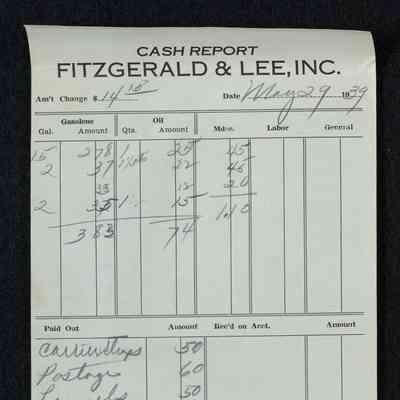 CASH REPORT
FITZGERALD & LEE, INC.
Am't Change $ 14 18 Date May 29 1939
Gasolene Oil
Gal. Amount Qts. Amount Mdse. Labor General
15 278 1 25 45
2 37 22 45
35 12 20
2 35 1 15
383 74 1.10
Paid Out Amount Rec'd on Acct. Amount
50
Postage 60
50